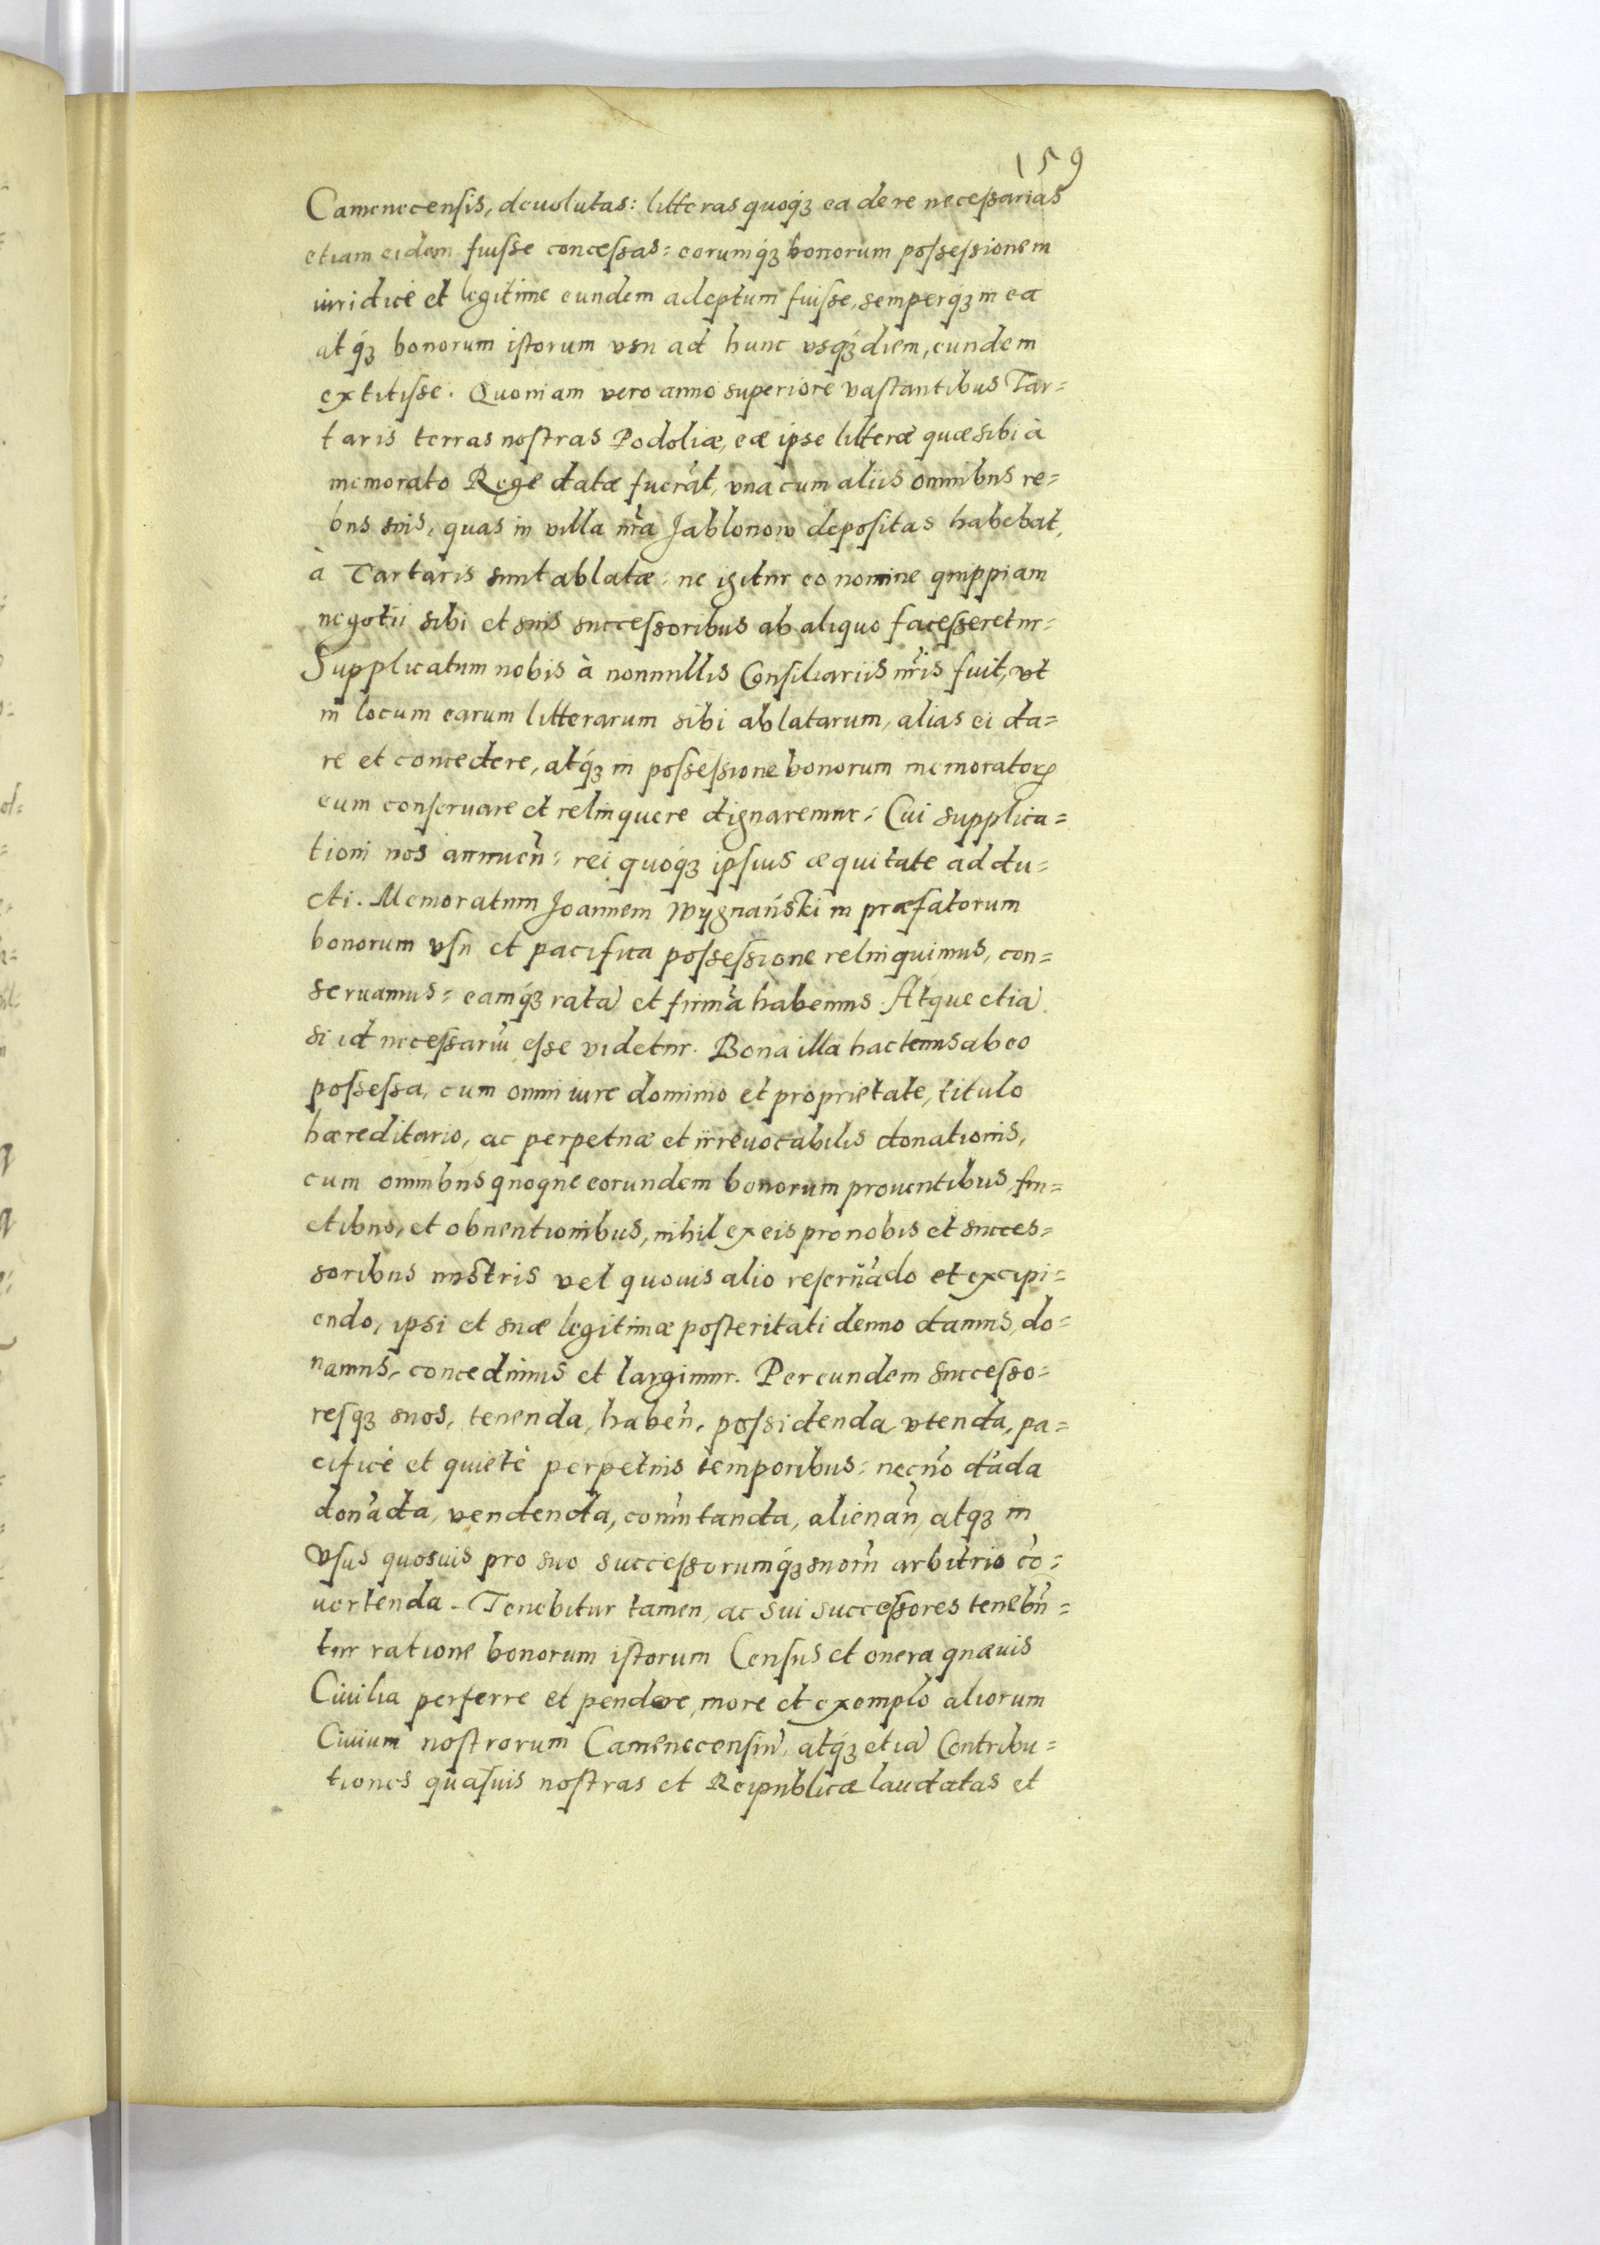 159
Camenecensis, deuolutas: litteras quoqꝫ ea de re necessarias
etiam eidem fuisse concessas: eorumqꝫ bonorum possessionem
iuridicè et legitime eundem adeptum fuisse, semperqꝫ in ea
atqꝫ bonorum istorum vsu ad hunc vsqꝫ diem, eundem
extitisse. Quoniam vero anno superiore vastantibus Tar=
taris terras nostras Podoliæ, eæ ipse litteræ quæ sibi à
memorato Rege datæ fuerāt, vna cum aliis omnibus re=
bus suis, quas in villa nr̃a Jablonow depositas habebat,
à Tartaris sunt ablatæ: ne igitur eo nomine quippiam
negotii sibi et suis successoribus ab aliquo facesseretur:
Supplicatum nobis à nonnullis Consiliariis nr̃is fuit, vt
in locum earum litterarum sibi ablatarum, alias ei da=
re et concedere, atqꝫ in possessione bonorum memoratoꝝ
eum conseruare et relinquere dignaremur: Cui supplica=
tioni nos annuen̄: rei quoqꝫ ipsius æquitate addu=
cti. Memoratum Joannem Wygnański in præfatorum
bonorum vsu et pacifica possessione relinquimus, con=
seruamus: eamqꝫ ratā et firmā habemus. Atque etiā
si id necessariū esse videtur. Bona illa hactenus ab eo
possessa, cum omni iure dominio et proprietate, titulo
hæreditario, ac perpetuæ et irreuocabilis donationis,
cum omnibus quoque eorundem bonorum prouentibus, fru=
ctibus, et obuentionibus, nihil ex eis pro nobis et succes=
soribus nostris vel quouis alio reseruādo et excipi=
endo, ipsi et suæ legitimæ posteritati denuo damus, do=
namus, concedimus et largimur. Per eundem successo=
resqꝫ suos, tenenda, haben̄, possidenda, vtenda, pa=
cificè et quietè perpetuis temporibus: necn̄o dāda
donāda, vendenda, com̄utanda, alienan̄, atqꝫ in
vsus quosuis pro suo successorumqꝫ suorū arbitrio cō=
uertenda. Tenebitur tamen, ac sui successores tenebū=
tur ratione bonorum istorum Census et onera quæuis
Ciuilia perferre et pendere, more et exemplo aliorum
Ciuium nostrorum Camenecensiū, atqꝫ etiā Contribu=
tiones quasuis nostras et Reipublicæ laudatas et